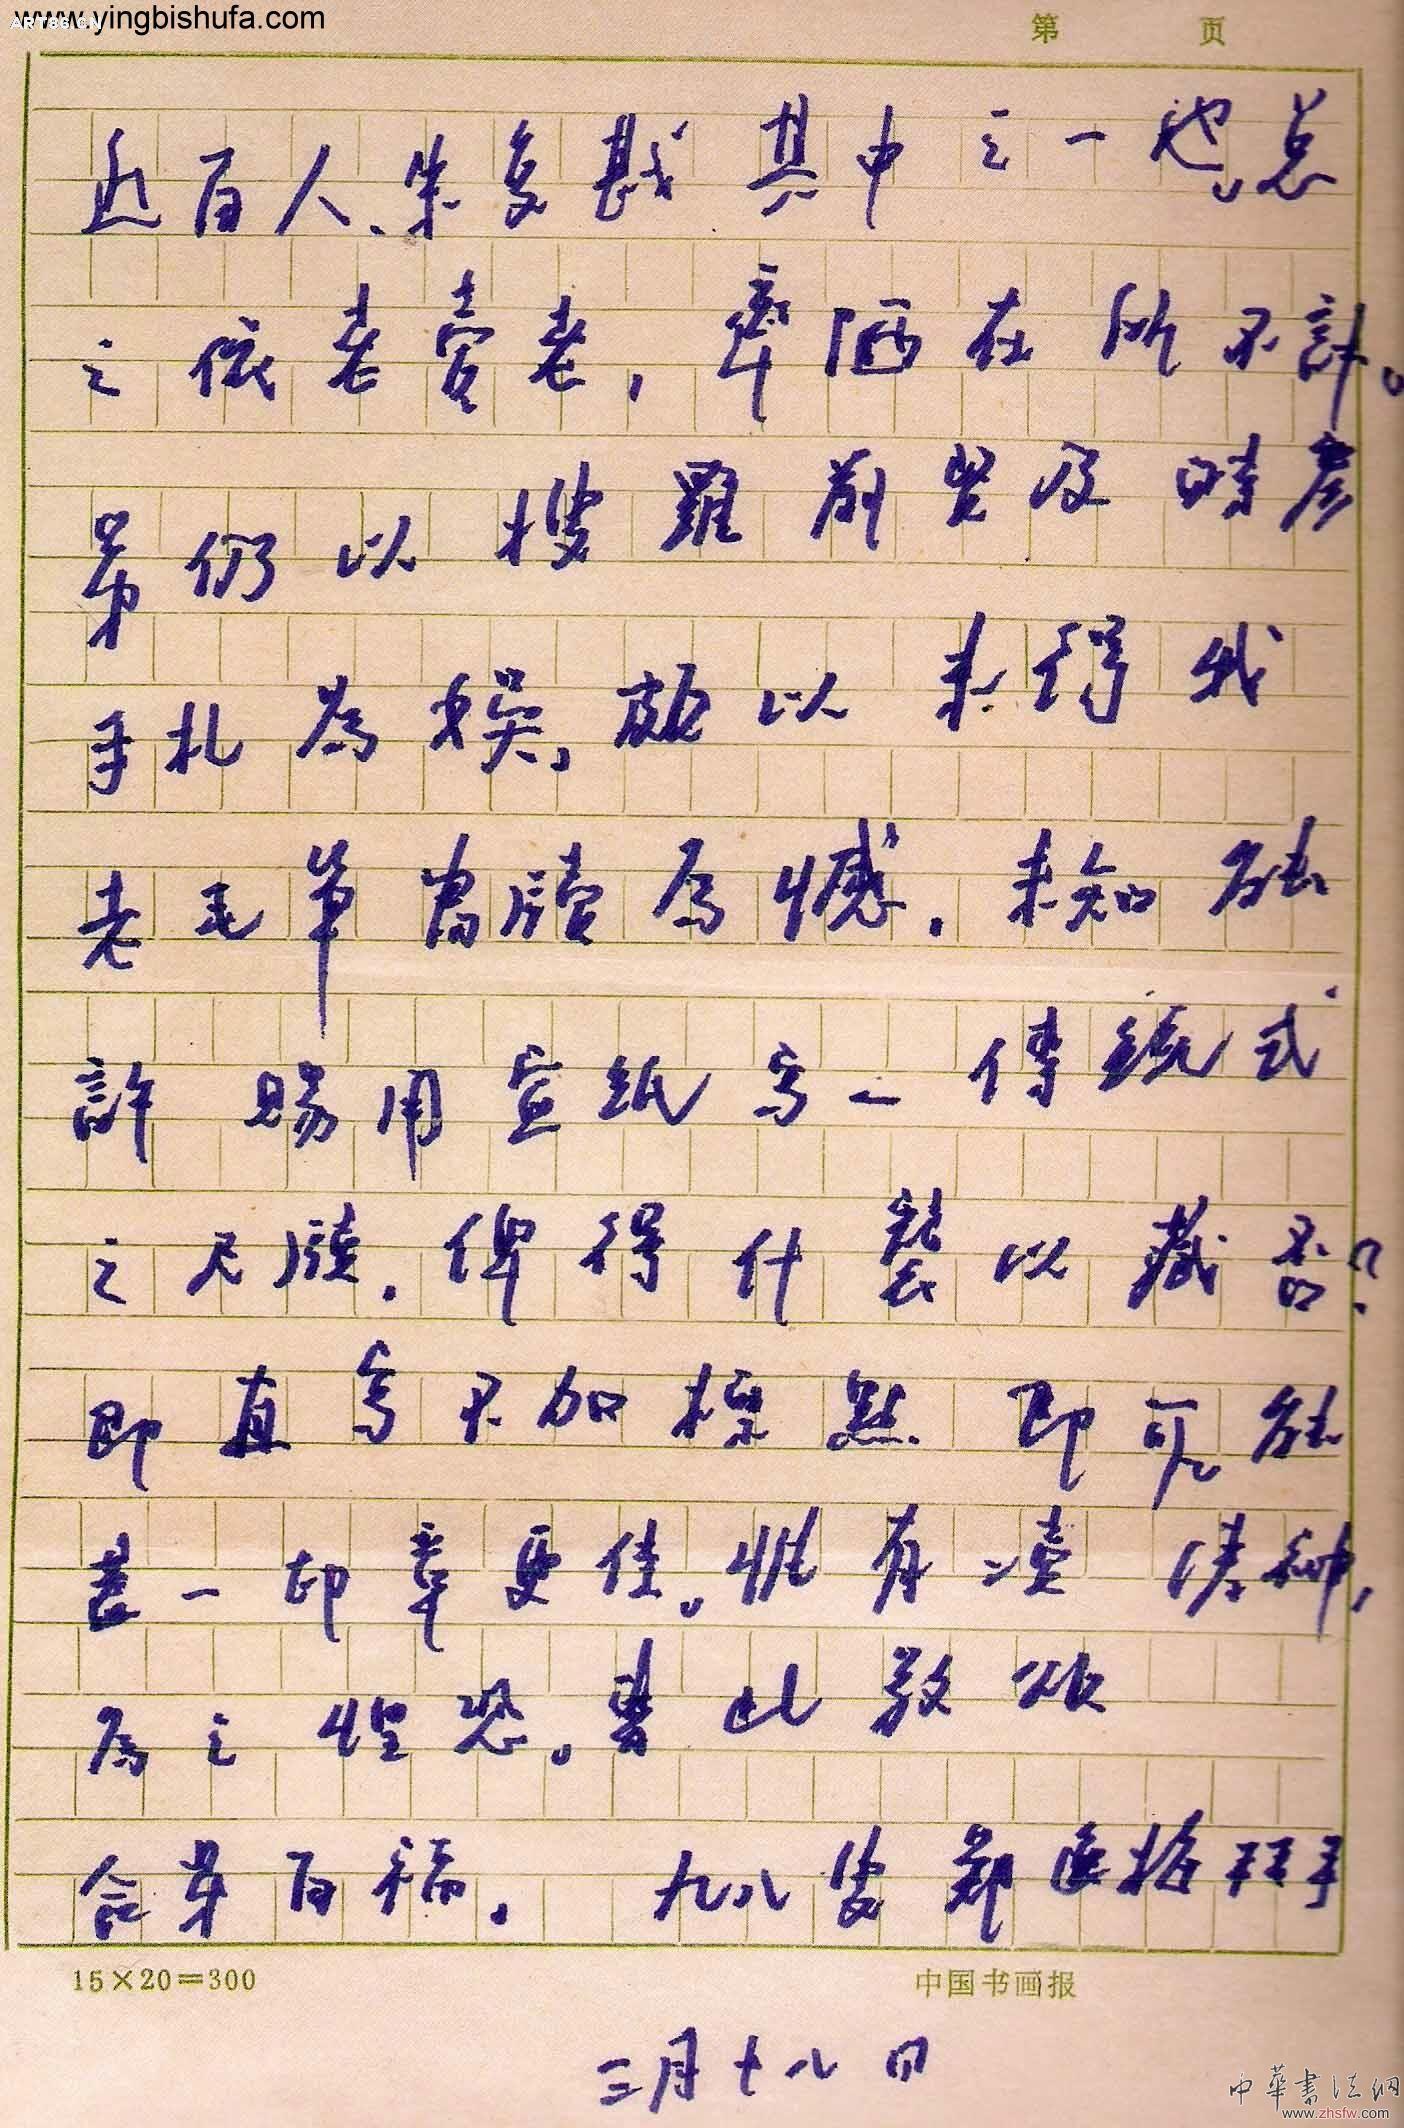 www.yingbishufa.com
ART86.CN
第 页
近百人、朱复戡其中之一也,总
之依老卖老,弃陋在所不计。
弟仍以搜罗前贤及时彦
手札为娱,颇以未得我
老毛笔书牍为憾.未知能
許赐用宣纸写一传统式
之尺牍.俾得什装以藏否?
即直写不加标点即可,能
盖一印章更佳。惟有渎清神,
为之惶恐。専此敬颂
合第百福. 九八叟郑逸梅拜手
15×20=300
中国书画报
三月十八日
中華書法網
www.zhsfw.com